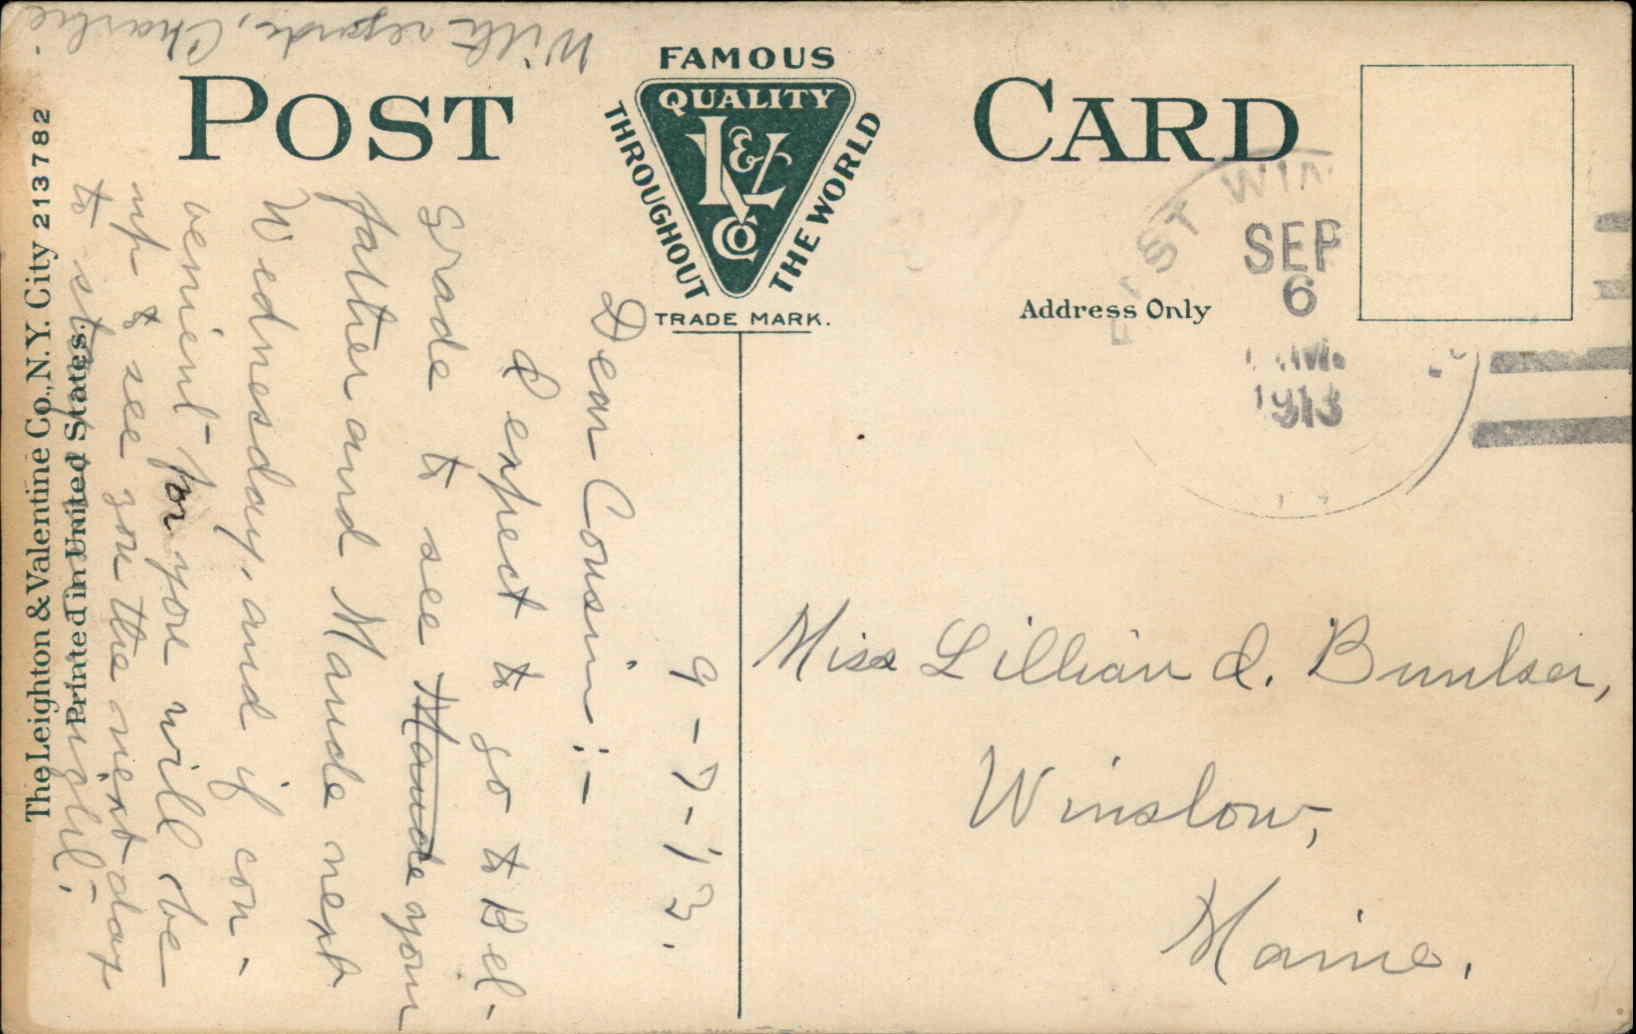 POST CARD
FAMOUS
QUALITY
V&L
Co
THROUGHOUT
THE WORLD
TRADE MARK.
Address Only
EAST WIN
SEP
6
1913
9-7-13.
Dear Cousin:-
I expect to go to Bel-
grade to see Maude your
father and Maude next
Wednesday, and if con-
venient for you will be
up to see you the next day
to stay night.
With regards, Charlie.
Miss Lillian I.
Winslow,
Maine.
The Leighton & Valentine Co., N.Y. City 213782
Printed in United States.